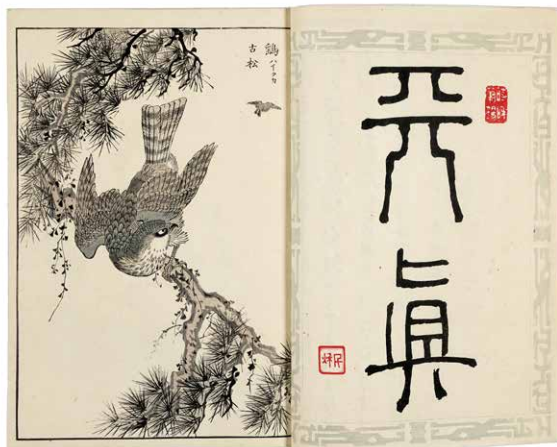 天眞
鷂 ハイタカ
古松